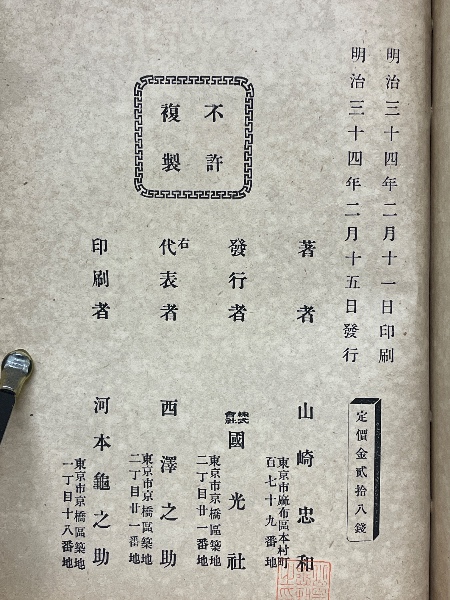 明治三十四年二月十一日印刷
明治三十四年二月十五日發行
定價金貳拾八錢
不許
複製
著者
山崎忠和
東京市麻布區本村町
百七十九番地
發行者
株式
會社
國光社
東京市京橋區築地
二丁目廿一番地
右
代表者
西澤之助
東京市京橋區築地
二丁目廿一番地
印刷者
河本龜之助
東京市京橋區築地
一丁目十八番地